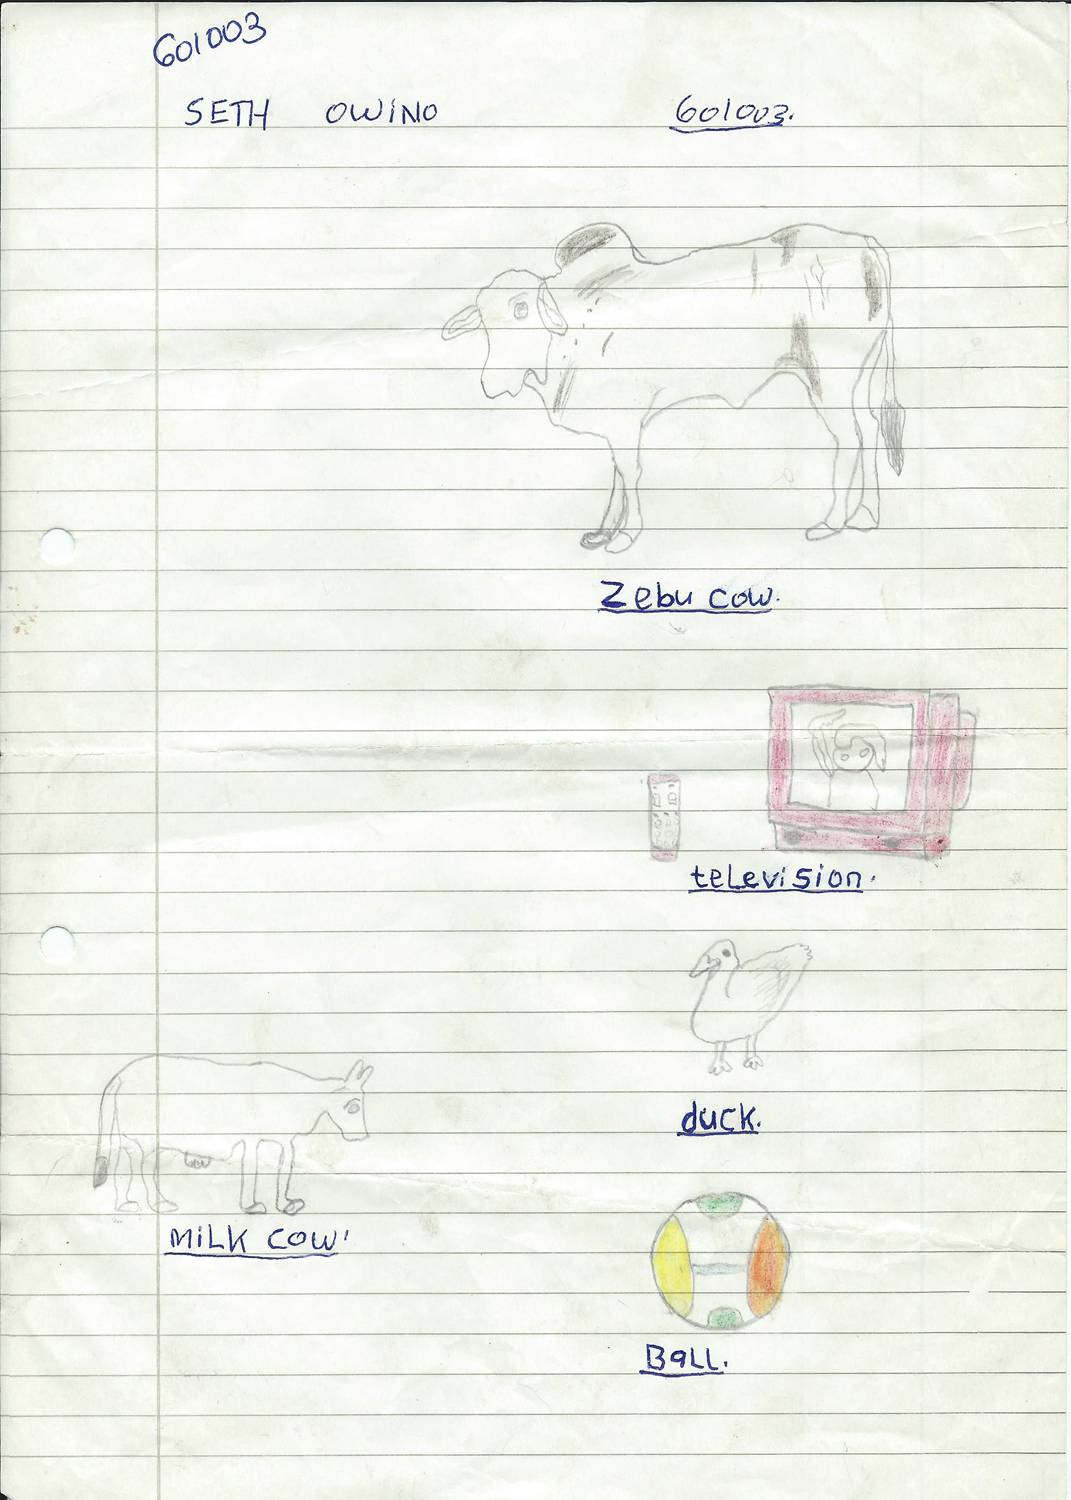 601003
SETH OWINO 601003.
Zebu cow.
television.
duck.
MiLK COW.
BaLL.